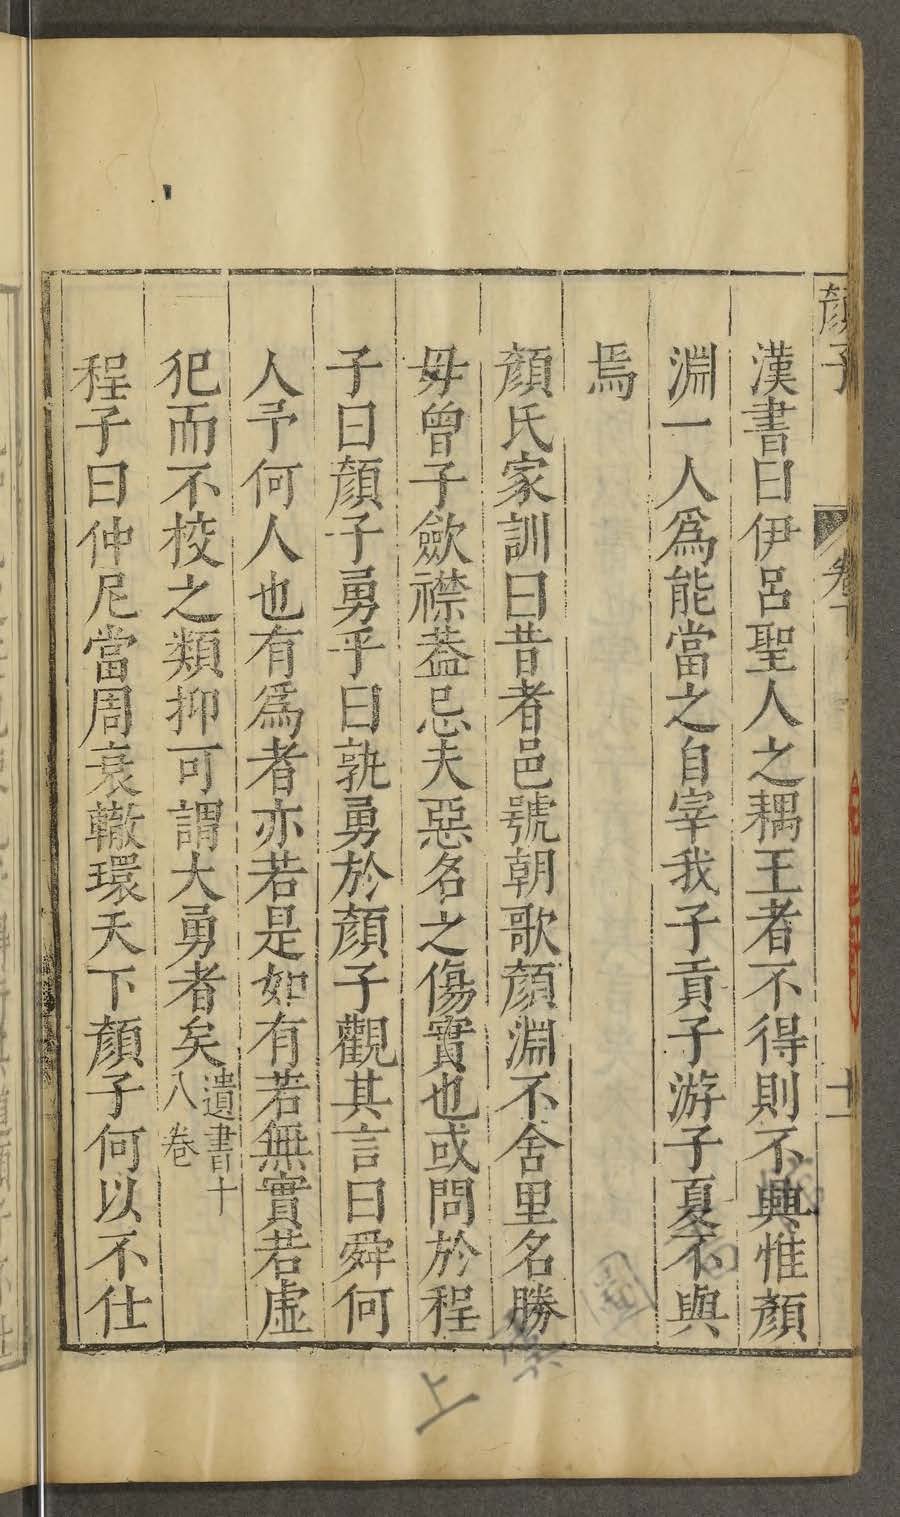 顏子
卷下
十一
漢書曰伊呂聖人之耦王者不得則不興惟顏
淵一人爲能當之自宰我子貢子游子夏不與
焉
顏氏家訓曰昔者邑號朝歌顏淵不舍里名勝
毋曾子歛襟葢忌夫惡名之傷實也或問於程
子曰顏子勇乎曰孰勇於顏子觀其言曰舜何
人予何人也有爲者亦若是如有若無實若虛
犯而不校之類抑可謂大勇者矣遺書十八卷
程子曰仲尼當周衰轍環天下顏子何以不仕